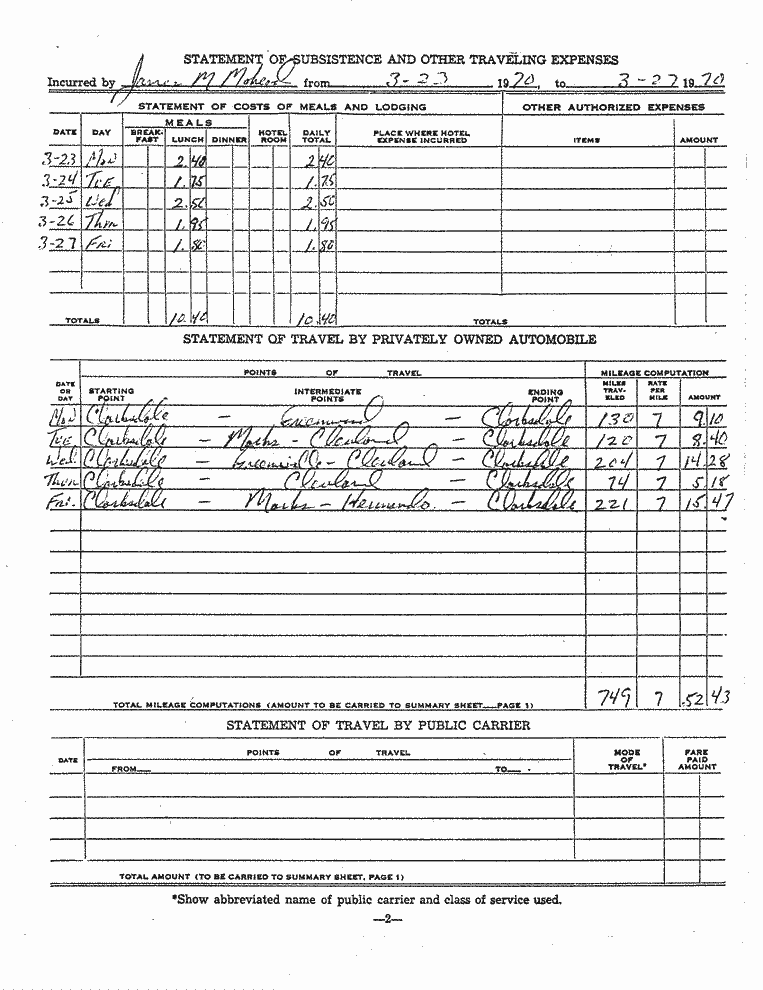 STATEMENT OF SUBSISTENCE AND OTHER TRAVELING EXPENSES
Incurred by James M Mohead from 3-23 1970, to 3-27 1970
STATEMENT OF COSTS OF MEALS AND LODGING OTHER AUTHORIZED EXPENSES
MEALS
DATE DAY BREAK-FAST LUNCH DINNER HOTEL ROOM DAILY TOTAL PLACE WHERE HOTEL EXPENSE INCURRED ITEMS AMOUNT
3-23 Mon 2.40 2.40
3-24 TUE 1.75 1.75
3-25 Wed 2.50 2.50
3-26 Thur 1.95 1.95
3-27 Fri 1.80 1.80
TOTALS 10.40 10.40 TOTALS
STATEMENT OF TRAVEL BY PRIVATELY OWNED AUTOMOBILE
POINTS OF TRAVEL MILEAGE COMPUTATION
DATE OR DAY STARTING POINT INTERMEDIATE POINTS ENDING POINT MILES TRAV-ELED RATE PER MILE AMOUNT
Mon Clarksdale - Greenwood - Clarksdale 130 7 9.10
TUE Clarksdale - Marks - Cleveland - Clarksdale 120 7 8.40
Wed Clarksdale - Greenville - Cleveland - Clarksdale 204 7 14.28
Thur Clarksdale - Cleveland - Clarksdale 74 7 5.18
Fri. Clarksdale - Marks - Hernando. - Clarksdale 221 7 15.47
TOTAL MILEAGE COMPUTATIONS (AMOUNT TO BE CARRIED TO SUMMARY SHEET PAGE 1) 749 7 52.43
STATEMENT OF TRAVEL BY PUBLIC CARRIER
DATE POINTS OF TRAVEL MODE OF TRAVEL* FARE PAID AMOUNT
FROM TO
TOTAL AMOUNT (TO BE CARRIED TO SUMMARY SHEET, PAGE 1)
*Show abbreviated name of public carrier and class of service used.
—2—